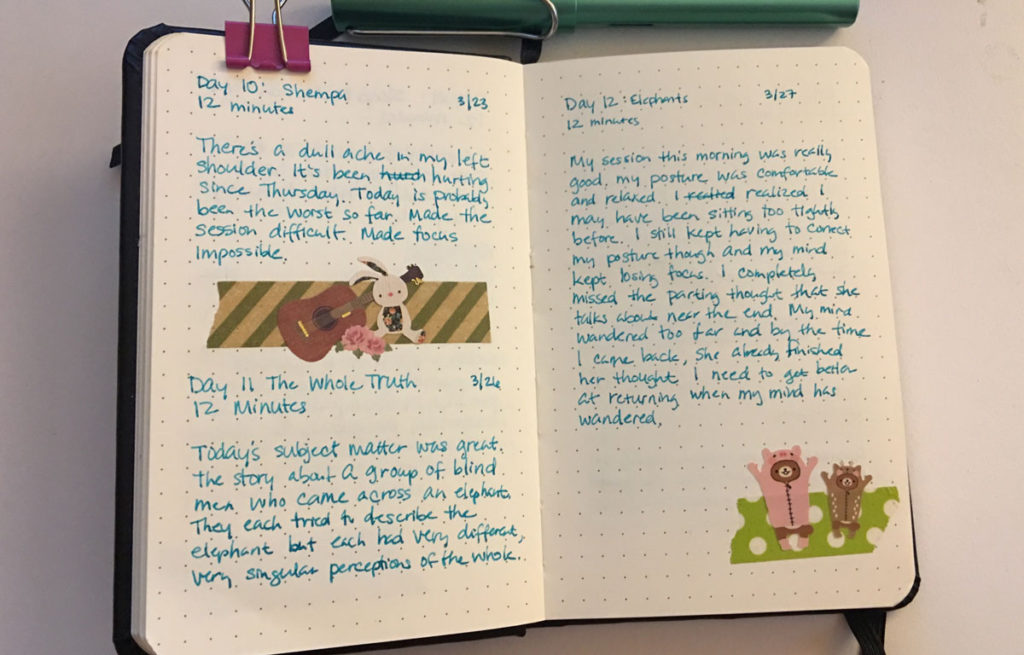 Day 10: Shempa 3/23
12 minutes
There's a dull ache in my left
shoulder. It's been hurting
since Thursday. Today is probably
been the worst so far. Made the
session difficult. Made focus
impossible.
Day 11 The Whole Truth 3/26
12 Minutes
Today's subject matter was great.
The story about a group of blind
men who came across an elephant.
They each tried to describe the
elephant but each had very different,
very singular perceptions of the whole.
Day 12: Elephants 3/27
12 minutes
My session this morning was really
good. my posture was comfortable
and relaxed. I realized i
may have been sitting too tightly
before. I still kept having to correct
my posture though and my mind
kept losing focus. I completely
missed the parting thought that she
talks about near the end. My mind
wandered too far and by the time
I came back, she already finished
her thought. I need to get better
at returning when my mind has
wandered.